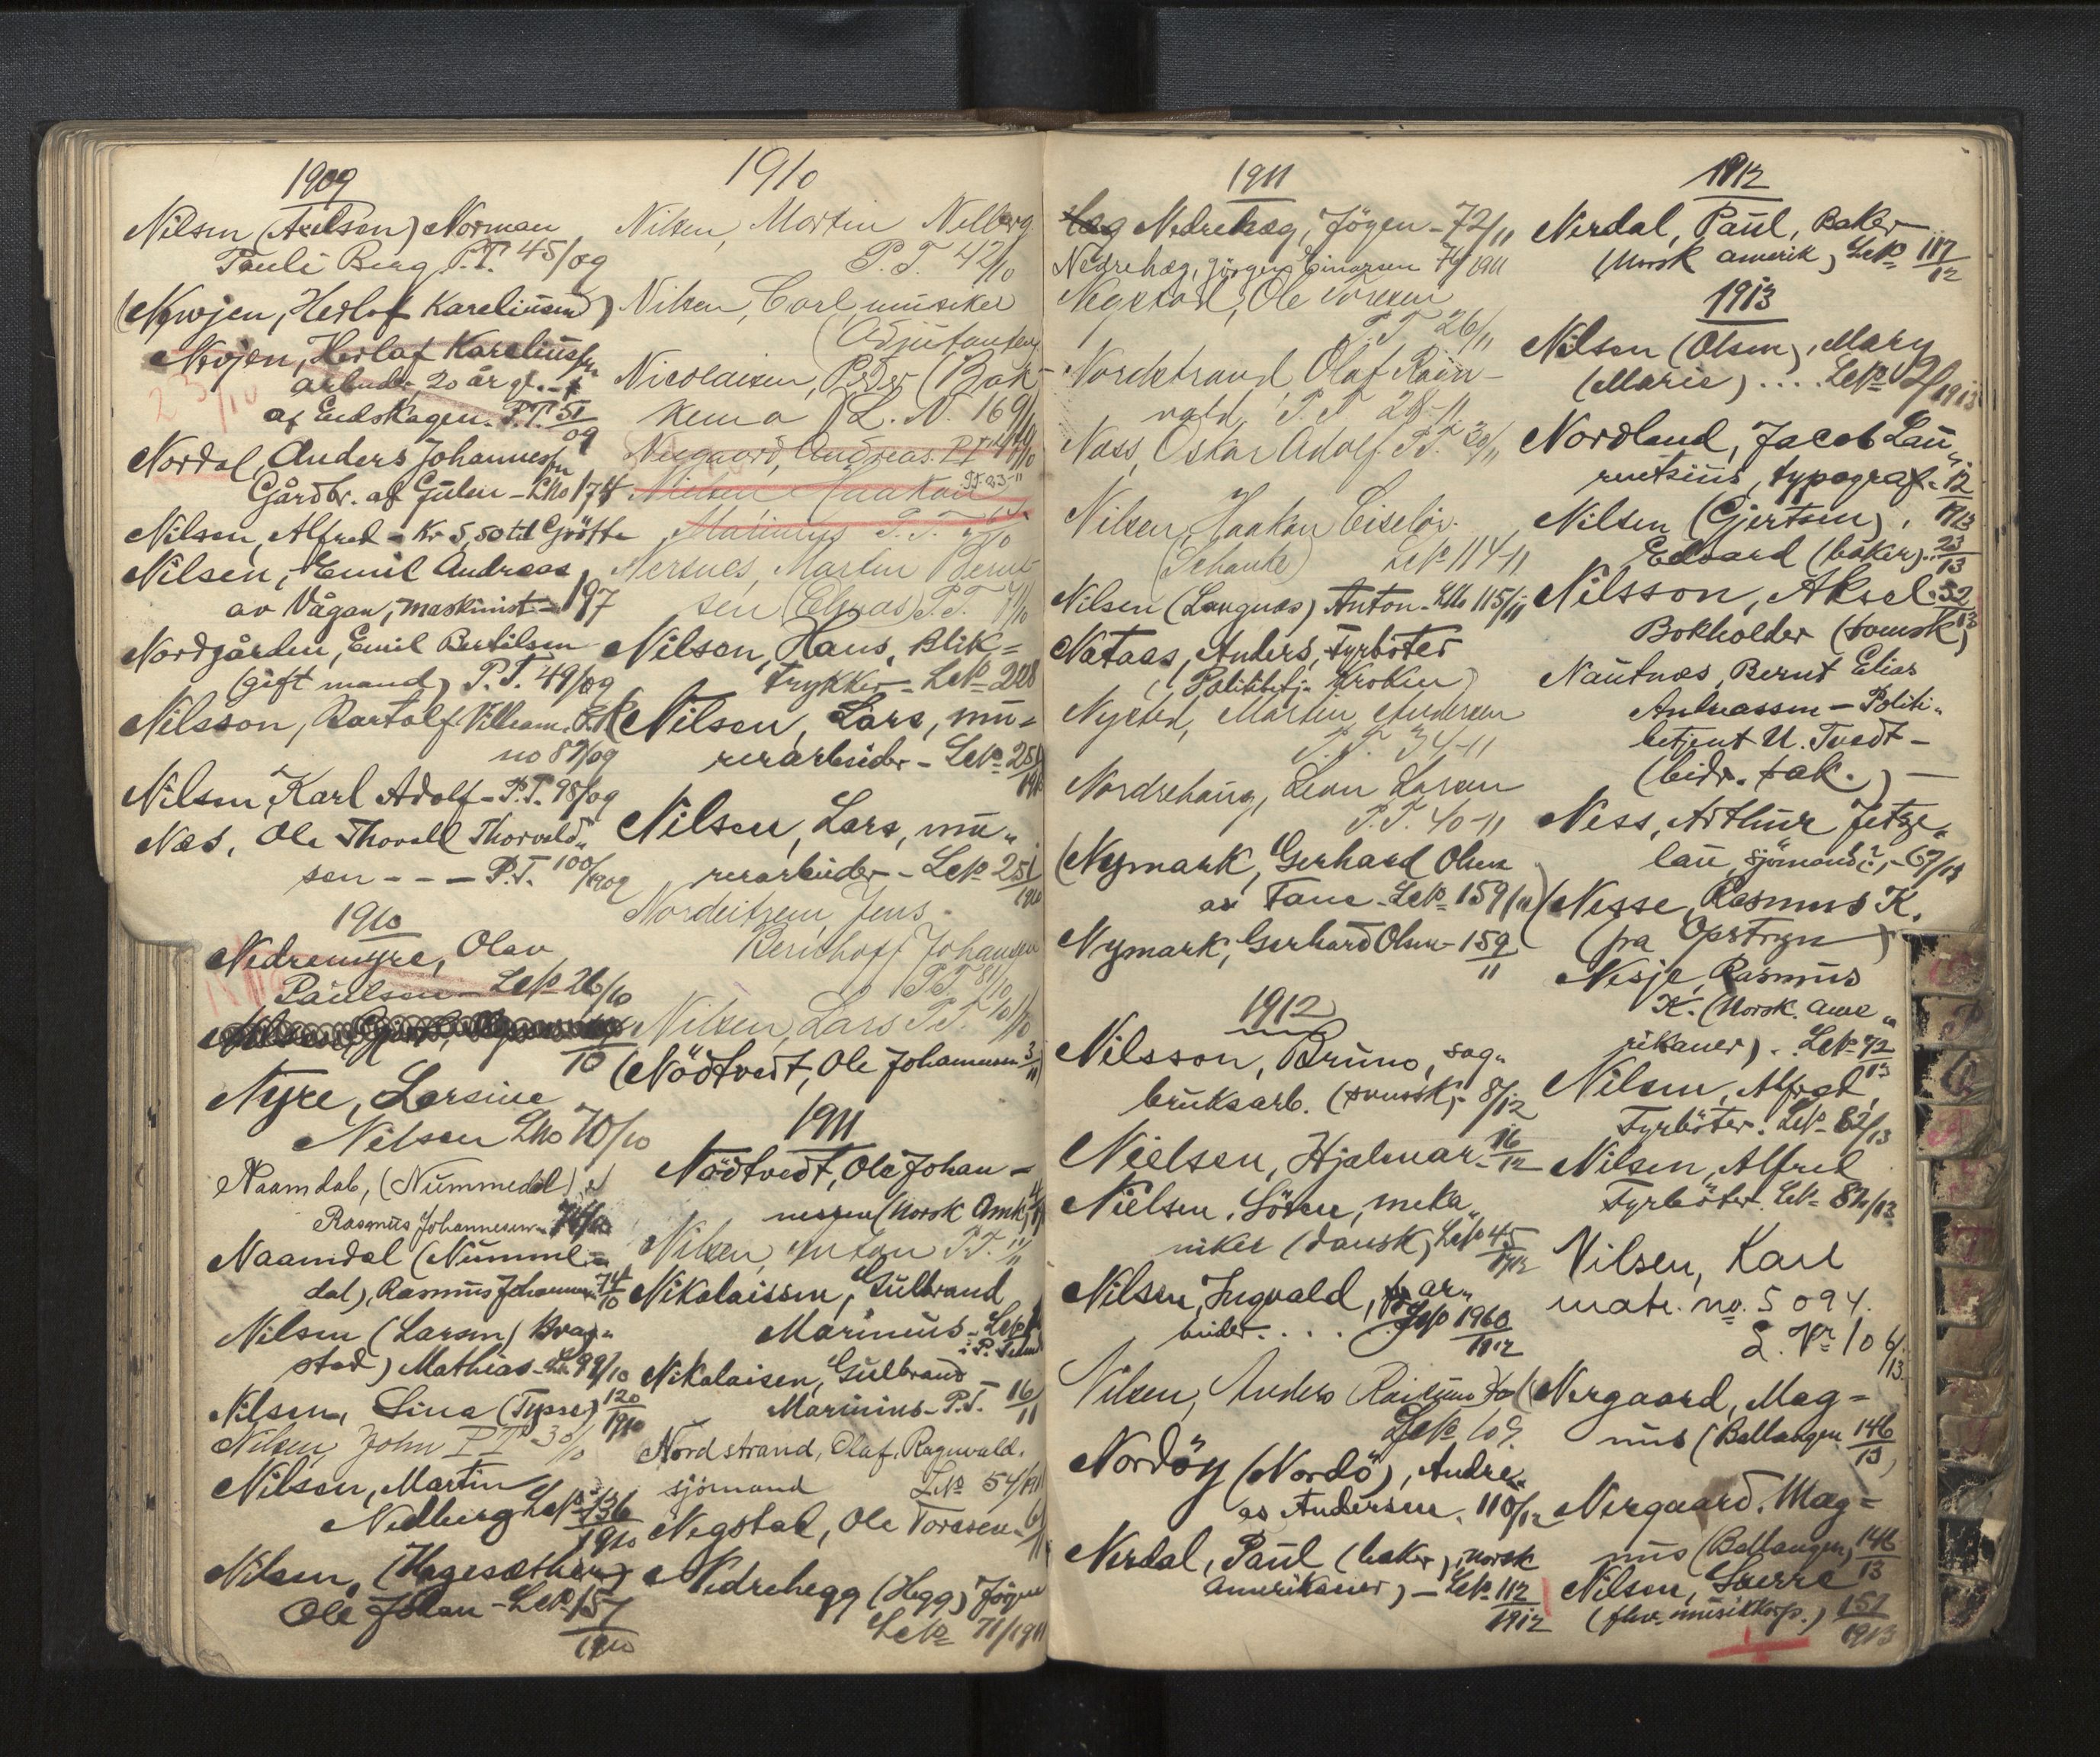 1909
Nilsen (Axelsen) Norman
Pauli Berg P.T. 45/09
(Nyvojen, Herlof Kareliussen)
Nyvojen, Herlof Kareliussen
arbeid. 20 år gl.
af Endskagen. P.T. 51/09
23/10
Nordal, Anders Johannessen
Gårdbr. af Gulen - LNo 174
Nilsen, Alfred - Kr 5,50 til Grötte
Nilsen, Emil Andreas
av Vågan, maskinist - 197
Nordgården, Emil Bertilsen
(gift mand) P.T. 49/09
Nilsson, Bartolf Villiam.
no 87/09
Nilsen, Karl Adolf - P.T. 98/09
Næs, Ole Thorvell Thorvald„
sen - - - P.T. 100/1909
1910
Nedremyre, Olav
Paulsen - LNo 26/10
10
Nyre, Larsine
Nilsen LNo 70/10
Naamdal, (Nummedal)
Rasmus Johannesen - 74/10
Naamdal (Numme=
dal), Rasmus Johannesen 74/10
Nilsen (Larsen) Kvag„
stad) Mathias - LN 99/10
Nilsen, Lina (Tysse) 120/1910
Nilsen, John P.T. 30/10
Nilsen, Martin
Nedberg LNo 136/1910
Nilsen, (Hagesæther)
Ole Johan - LNo 157/1910
1910
Nilsen, Martin Nedberg
P.T. 42/10
Nilsen, Carl, musiker
(Adjutanten)
Nicolaisen, Peder (Bak-
kema) L.N. 169/10
Nygaard, Andreas P.T.
Nielsen Haakon P.T. 23-11
Marinius P.T.
Nersnes, Martin Bernt-
sen P.T. 71/10
Nilson, Hans, Blik=
trykker - LNo 208
Nilsen, Lars, mu=
rerarbeider - LNo 251/1910
Nilsen, Lars, mu„
rerarbeider - LNo 251/1910
Nordeitzem Jens
Berichoff Johansen
P.T. 81/10
Nilsen, Lars P.T. 101/10
(Nödtvedt, Ole Johannesen 3/11)
1911
Nödtvedt, Ole Johan=
nessen (norsk Amk) 4/11
Nilsen, Anton P.T. 11/11
Nikolaissen, Gulbrand
Marinius - LNo
Nikolaisen, Gulbrand
Marinius - P.T. 16/11
Nordstrand, Olaf Ragnvald.
sjömand LNo 54/1911
Negstad, Ole Torssen - 6/11
Nedrehegg (Hegg) Jörgen
LNo 71/1911
1911
Hæg Nedrehæg, Jögen - 72/11
Nedrehæg, Jörgen Einarsen 74/1911
Negstad, Ole Toresen
P.T. 26/11
Nordstrand Olaf Ragn-
vald P.T. 28-11
Næss, Oskar Adolf P.T. 30/11
Nilsen, Haakon Eiselöv.
(Schanke) LNo 114-11
Nilsen (Langnæs) Anton - LNo 115/11
Nataas, Anders, Fyrböter
(Politibetj. Kroken)
Nysted, Martin Andersen
P.T. 34-11
Nordrehaug, Leon Larsen
P.T. 40-11
(Nymark, Gerhard Olsen
av Fane - LNo 159/11)
Nymark, Gerhard Olsen - 159/11
1912
Nilsson, Bruno, sag„
bruksarb. (svensk) - 8/12
Nielsen, Hjalmar - 16/12
Nielsen, Sören, meka„
niker (dansk) LNo 45/1912
Nilsen, Ingvald, ar„
beider . . . . LNo 1960/1912
Nilsen, Anders
LNo 109.
Nordöy (Nordö), Andre„
as Andersen, 110/12
Nerdal, Paul (baker, norsk
amerikaner) - LNo 112/1912
1912
Nerdal, Paul, Baker
(norsk amerik) LNo 117/12
1913
Nilsen (Olsen), Mary
(Marie) .... LNo 2/1913
Nordland, Jacob Lau„
rentsius, typograf - 12/1913
Nilsen (Gjertsen),
Edvard (baker) - 23/13
Nilsson, Aksel - 52/13
Bokholder (svensk)
Nautnæs, Bernt Elias
Andreassen - Politi„
betjent U. Tvedt -
(bidr. sak.) -
Ness, Arthur Jetze„
lau, sjömand?, - 67/13
(Nesse, Rasmus K.
fra Opstryn)
Nesje, Rasmus
K. (Norsk. Ame„
rikaner). LNo 72/13
Nilsen, Alfred,
Fyrböter. LNo 82/13
Nilsen, Alfred
Fyrböter. LNo 82/13
Nilsen, Karl
matr. no. 5094.
L. Nr 106/13.
(Nergaard, Mag=
nus (Ballangen 146/13)
Nergaard, Mag=
nus (Ballangen) 146/13
Nilsen, Sverre
(fhv. musikkorp.) 151/1913